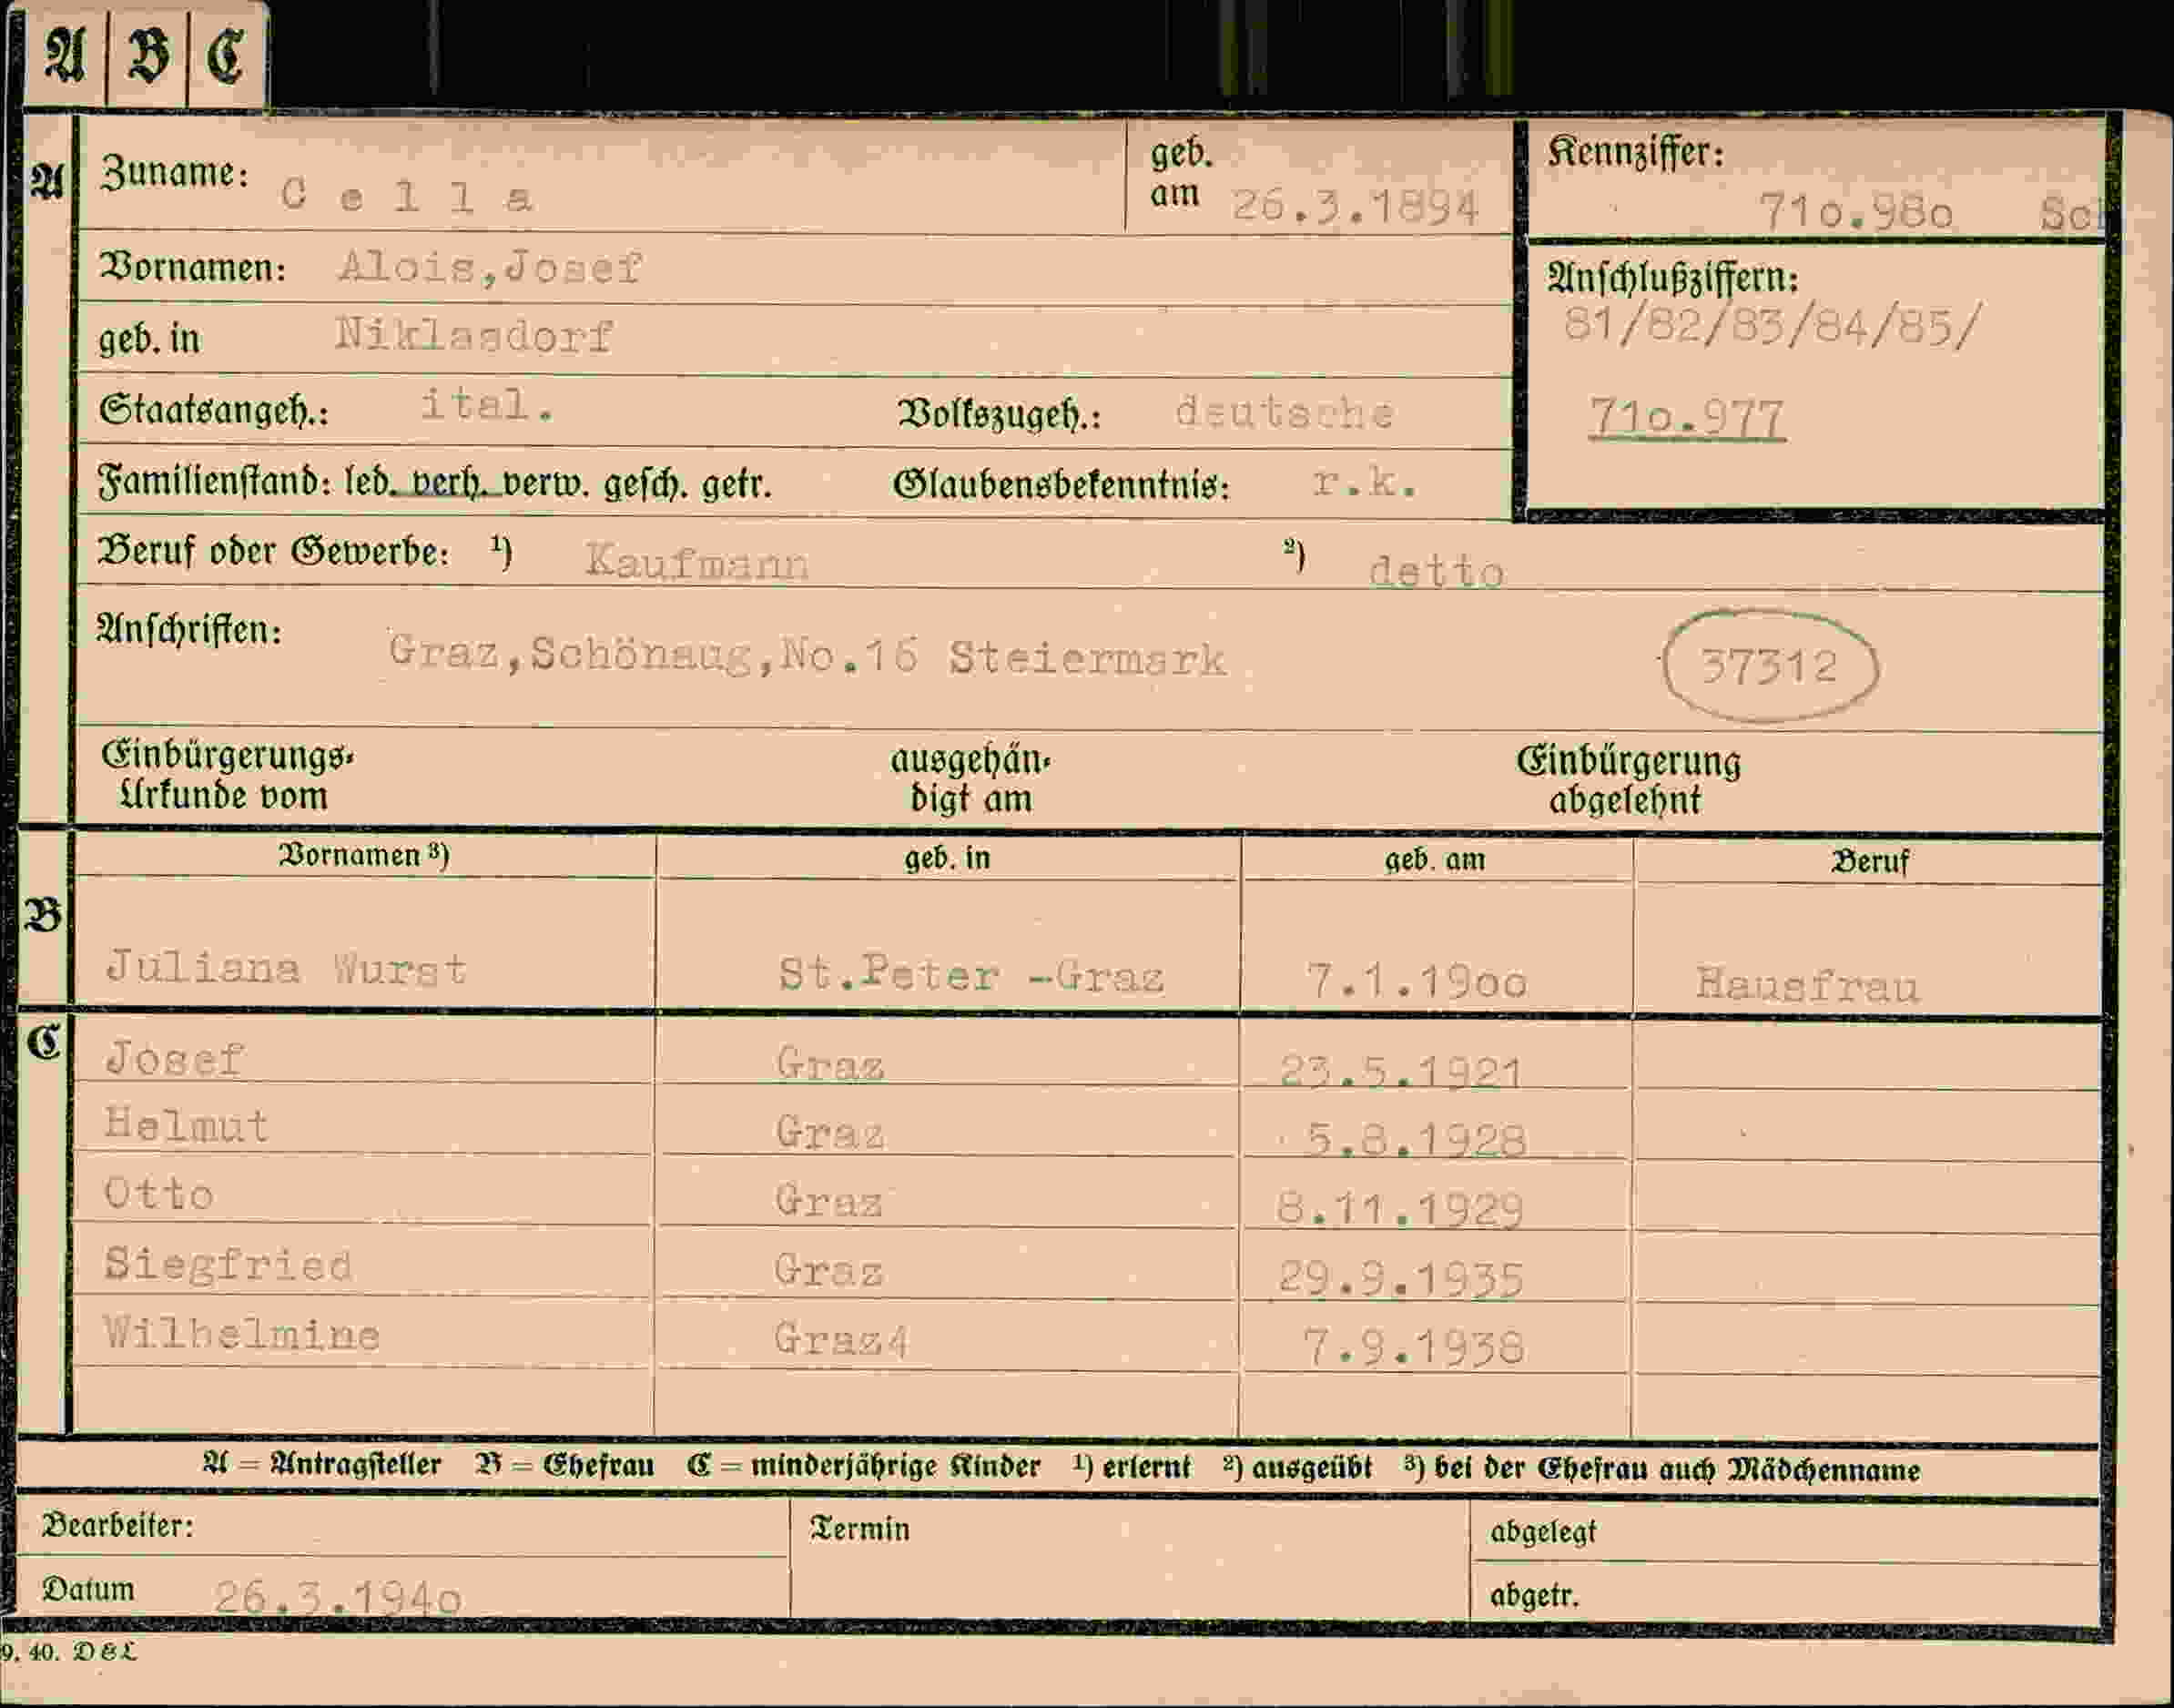 A B C
A Zuname: C e l l a geb. am 26.3.1894 Kennziffer: 71o.98o
Vornamen: Alois,Josef Anschlußziffern:
81/82/83/84/85/
geb. in Niklasdorf
Staatsangeh.: ital. Volkszugeh.: deutsche 71o.977
Familienstand: led. verh. verw. gesch. getr. Glaubensbekenntnis: r.k.
Beruf oder Gewerbe: ¹) Kaufmann ²) detto
Anschriften: Graz,Schönaug,No.16 Steiermark 37312
Einbürgerungs-Urkunde vom ausgehändigt am Einbürgerung abgelehnt
Vornamen ³) geb. in geb. am Beruf
B Juliana Wurst St.Peter -Graz 7.1.19oo Hausfrau
C Josef Graz 23.5.1921
Helmut Graz 5.8.1928
Otto Graz 8.11.1929
Siegfried Graz 29.9.1935
Wilhelmine Graz4 7.9.1938
A = Antragsteller B = Ehefrau C = minderjährige Kinder ¹) erlernt ²) ausgeübt ³) bei der Ehefrau auch Mädchenname
Bearbeiter: Termin abgelegt
Datum 26.3.194o abgetr.
9. 40. D&L